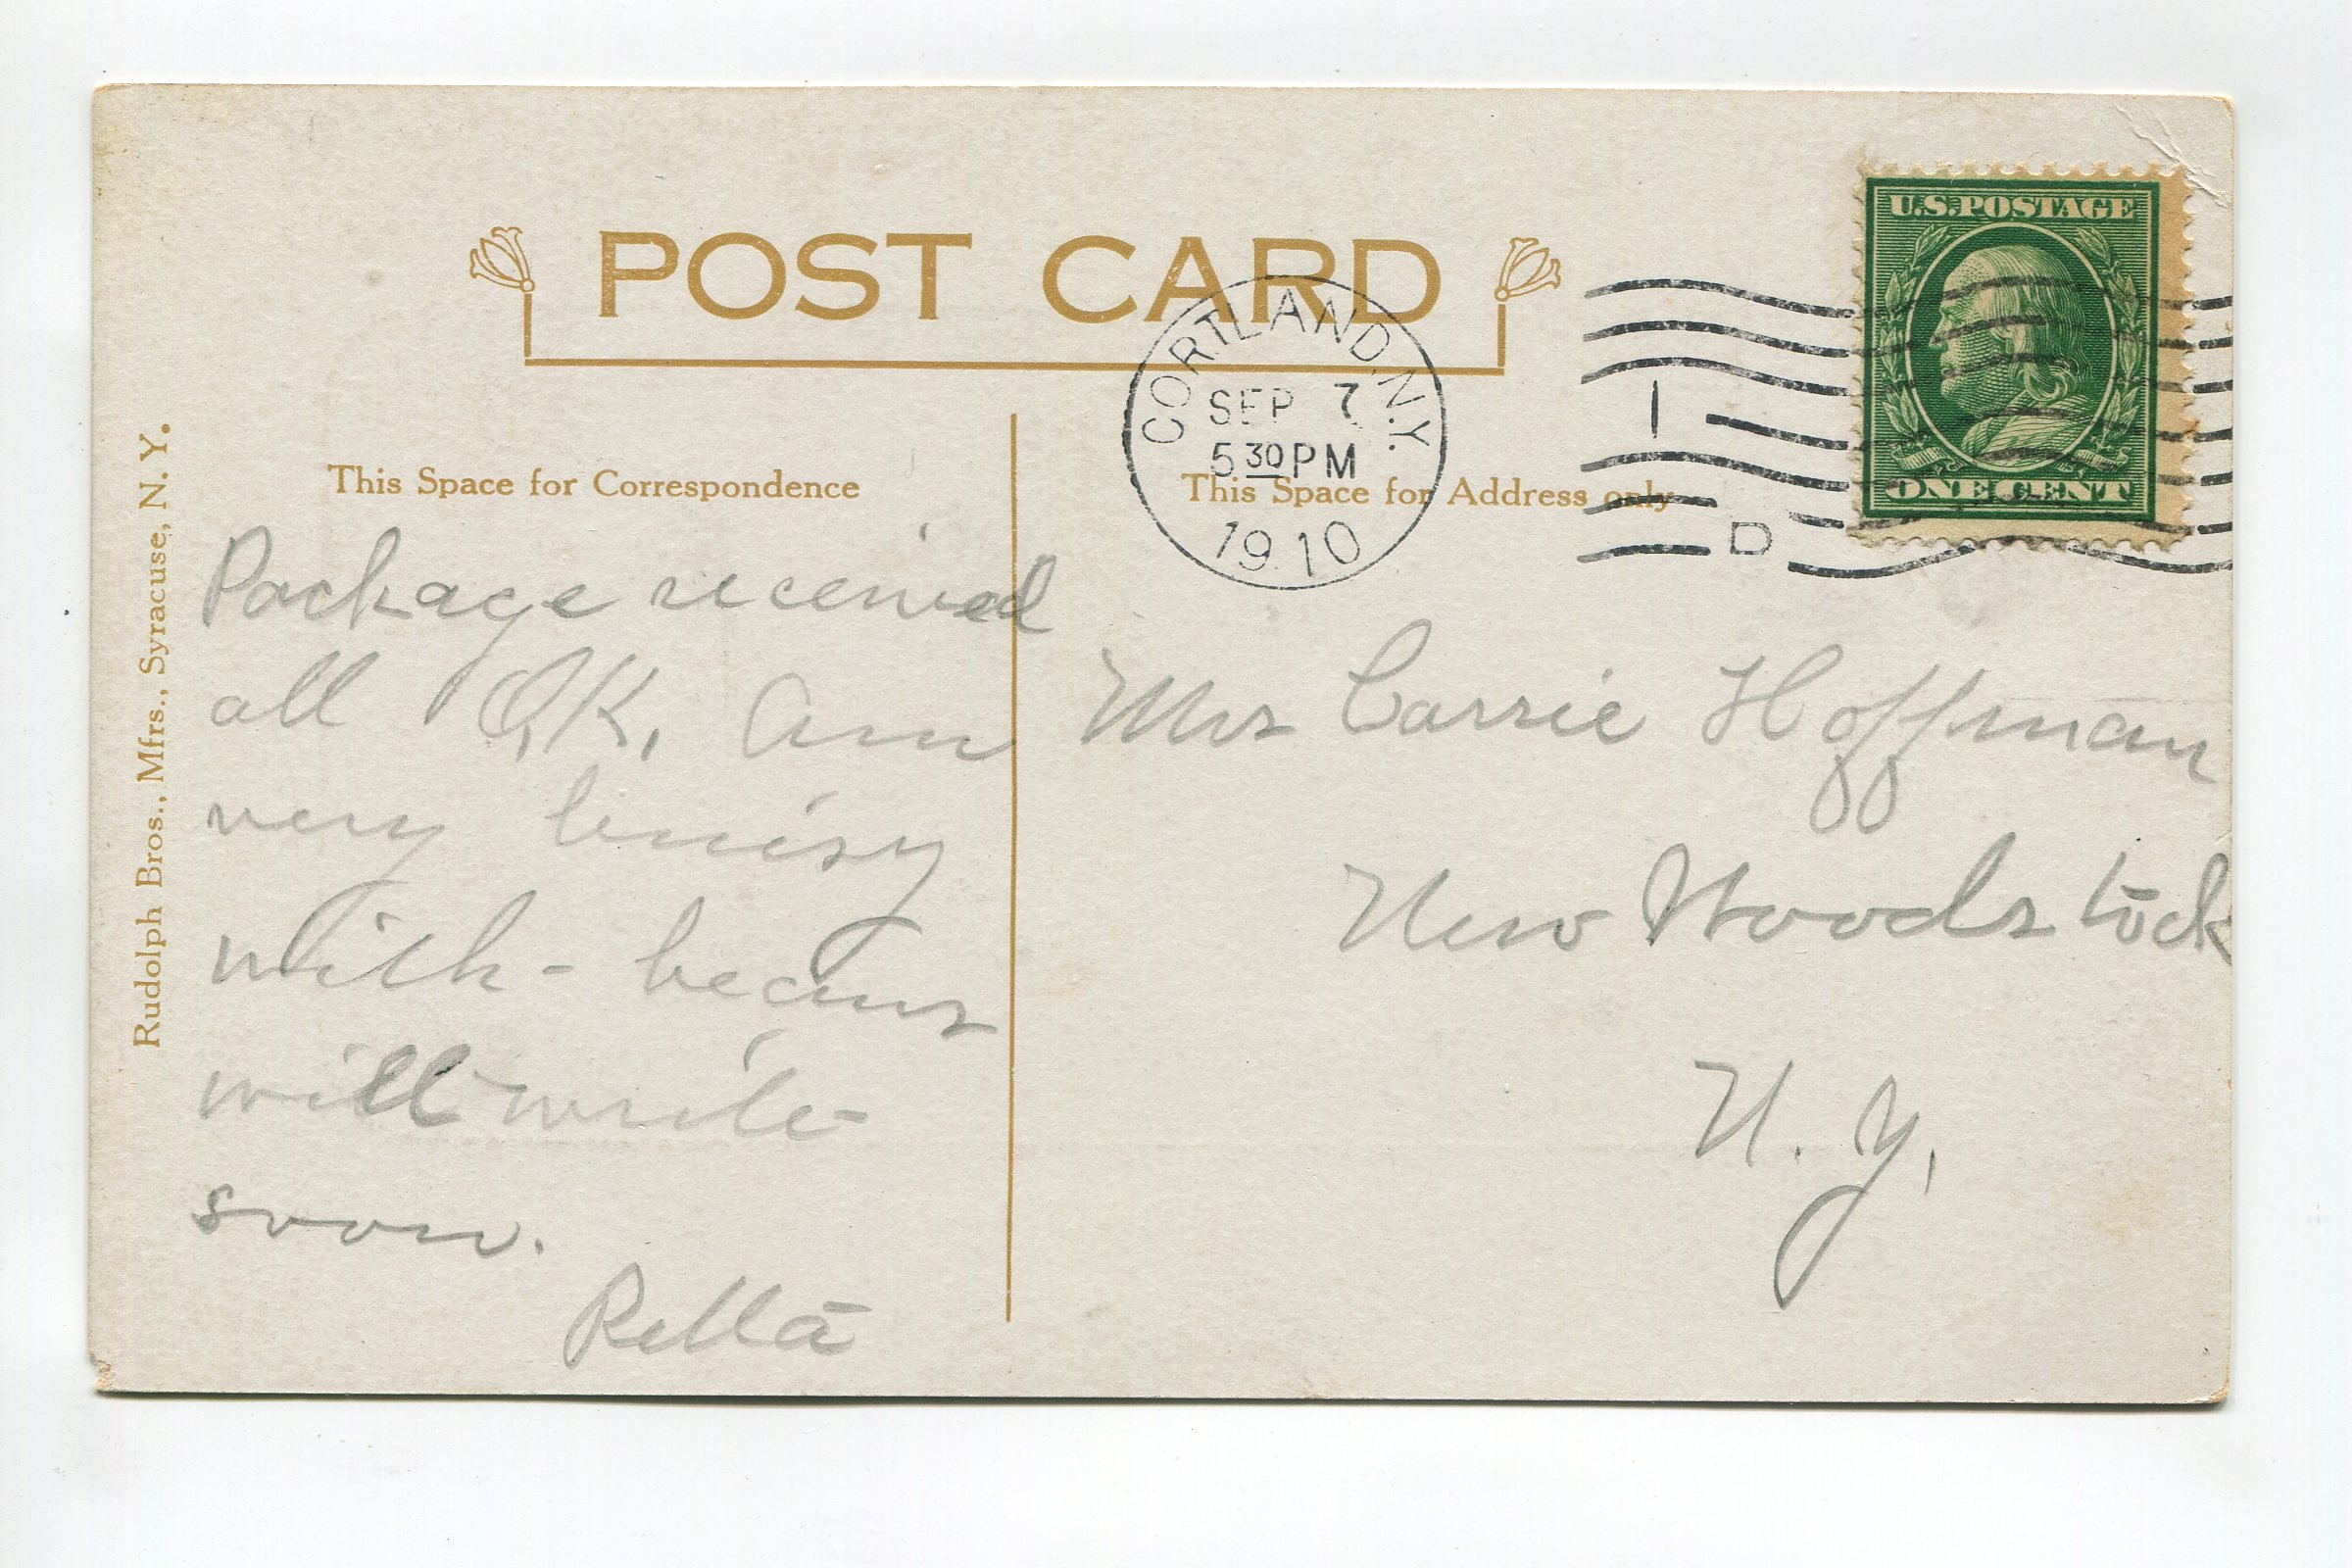 POST CARD
U.S. POSTAGE
ONE CENT
CORTLAND, N.Y.
SEP 7
5 30 PM
1910
1
D
This Space for Correspondence
This Space for Address only
Rudolph Bros., Mfrs., Syracuse, N. Y.
Package received
all O,K, Am
very buisy
with - beans
will write
soon.
Retta
Mrs Carrie Hoffman
New Woodstock
N. Y,